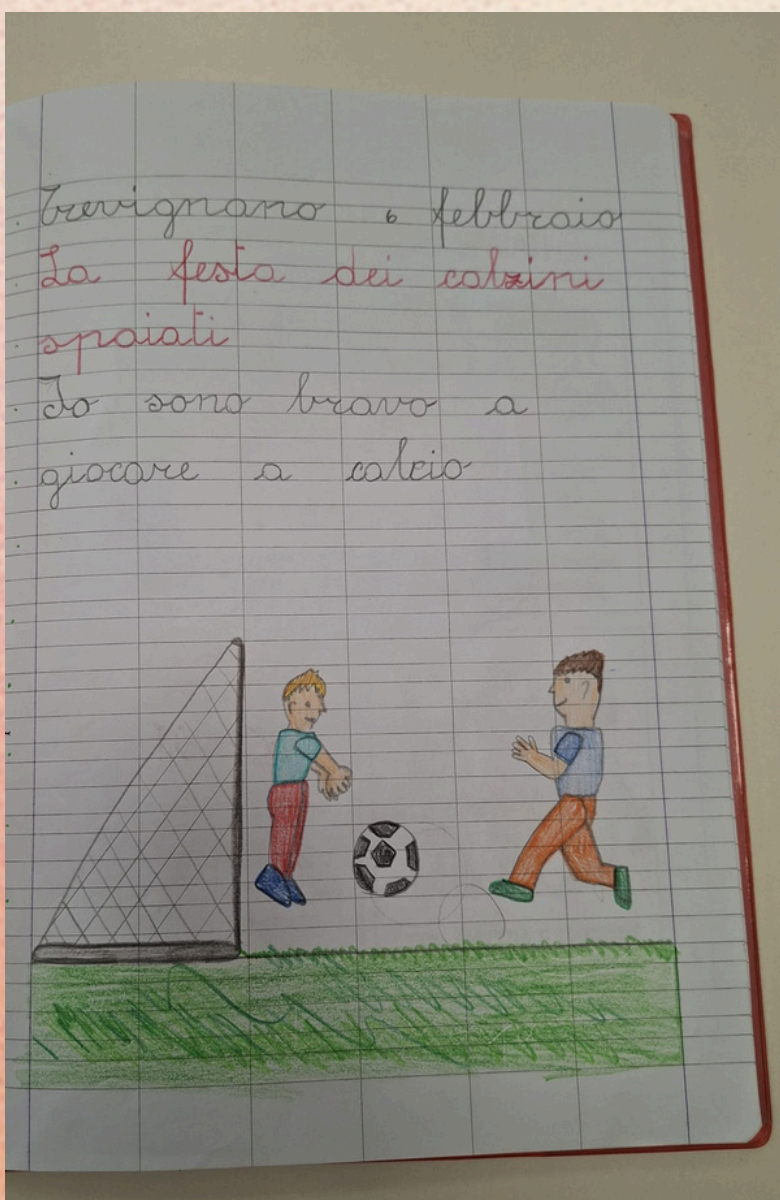 Trevignano 6 febbraio
La festa dei calzini
spaiati
Io sono bravo a
giocare a calcio